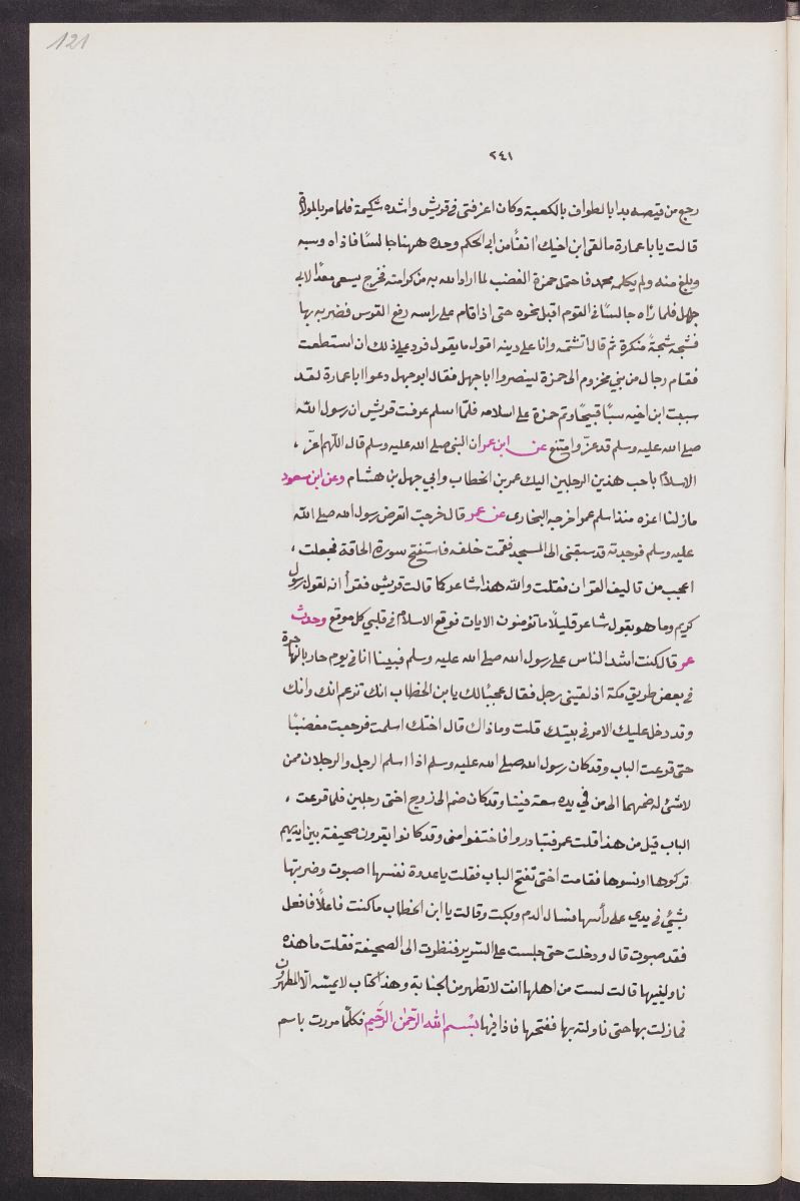 121
٢٤١
رجع من قنصه بدا بالطواف بالكعبة وكان اعز فتى فى قريش واشده شكيمة فلما مر بالمولاة
قالت يابا عمارة ما لقى ابن اخيك انفًا من ابى الحكم وجده ههنا جالسًا فاذاه وسبه
وبلغ منه ولم يكلمه محمد فاحتمل حمزة الغضب لما اراد الله به من كرامته فخرج يسعى معدًا لابى
جهل فلما رأه جالسًا فى القوم اقبل نحوه حتى اذا قام على راسه رفع القوس فضربه بها
فشجه شجةً منكرة ثم قال اتشتمه وانا على دينه اقول ما يقول فرد على ذلك ان استطعت
فقام رجال من بني مخزوم الى حمزة لينصروا ابا جهل فقال ابو جهل دعوا ابا عمارة لقد
سببت ابن اخيه سبًا قبيحًا وتم حمزة على اسلامه فلمّا اسلم عرفت قريش ان رسول الله
صلى الله عليه وسلم قد عزّ وامتنع عن ابن عمر ان النبى صلى الله عليه وسلم قال اللهم اعزّ ،
الاسلام باحب هذين الرجلين اليك عمر بن الخطاب وابي جهل بن هشام وعن ابن مسعود
ما زلنا اعزه منذ اسلم عمر اخرجه البخارى عن عمر قال خرجت اتعرض رسول الله صلى الله
عليه وسلم فوجدته قد سبقنى الى المسجد فقمت خلفه فاستفتح سورة الحاقة فجعلت ،
اعجب من تاليف القران فقلت والله هذا شاعر كما قالت قريش فقرأ انه لقول رسول
كريم وما هو بقول شاعر قليلًا ما تؤمنون الايات فوقع الاسلام فى قلبي كل موقع وحدث
عمر قال كنت اشد الناس على رسول الله صلى الله عليه وسلم فبينا انا فى يوم حار بالهاجرة
فى بعض طريق مكة اذ لقينى رجل فقال عجبًا لك يا بن الخطاب انك تزعم انك وانك
وقد دخل عليك الامر فى بيتك قلت وما ذاك قال اختك اسلمت فرجعت مغضبًا
حتى قرعت الباب وقد كان رسول الله صلى الله عليه وسلم اذا اسلم الرجل والرجلان ممن
لا شئ له ضمهما الى من في يده سعة فينا وقد كان ضم الى زوج اختى رجلين فلما قرعت ،
الباب قيل من هذا قلت عمر فتبادروا فاختفوا منى وقد كانوا يقرون صحيفة بين ايديهم
تركوها او نسوها فقامت اختى تفتح الباب فقلت يا عدوة نفسها اصبوت وضربتها
بشئ فى يدي على رأسها فسال الدم وبكت وقالت يا ابن الخطاب ما كنت فاعلًا فافعل
فقد صبوت قال ودخلت حتى جلست على السرير فنظرت الى الصحيفة فقلت ما هذه
ناولينيها قالت لست من اهلها انت لا تطهر من الجنابة وهذا كتاب لا يمسّه الّا المطهرون
فما زلت بها حتى ناولته بها ففتحتها فاذا فيها بسم الله الرحمن الرحيم فكلّما مررت باسم